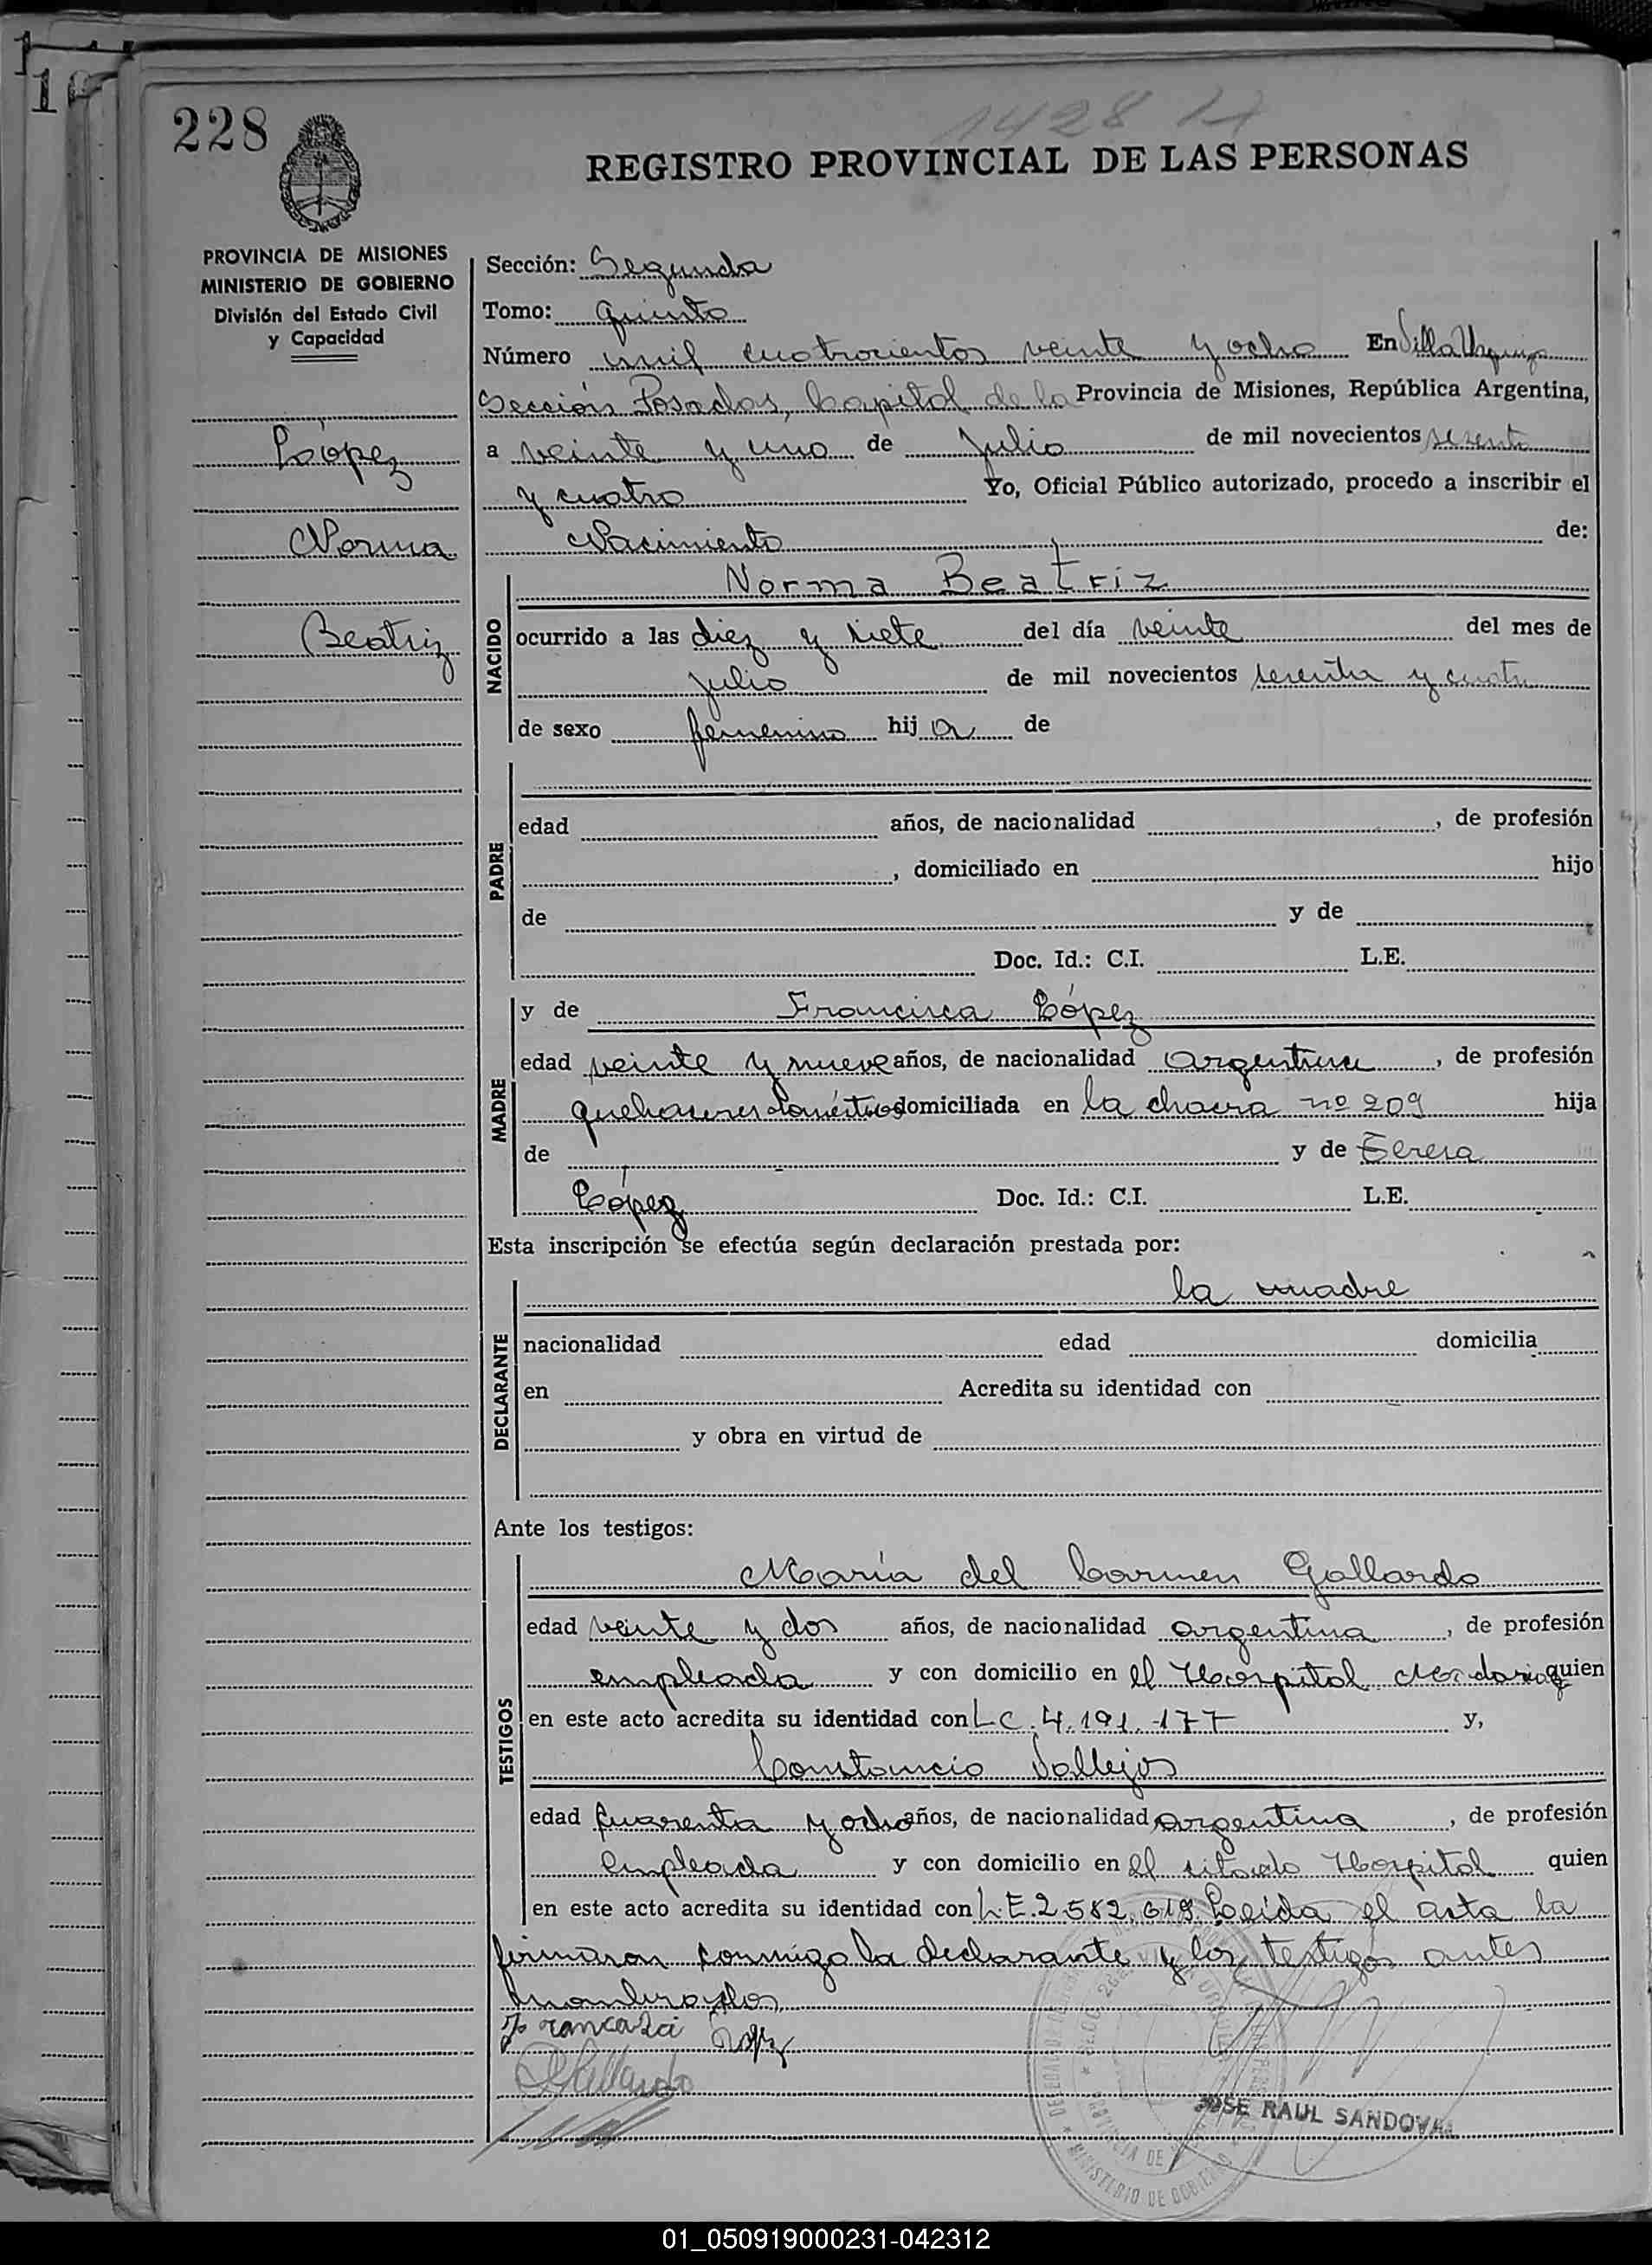 228
1428 H
REGISTRO PROVINCIAL DE LAS PERSONAS
PROVINCIA DE MISIONES
MINISTERIO DE GOBIERNO
División del Estado Civil
y Capacidad
López
Norma
Beatriz
Sección: Segunda
Tomo: Quinto
Número mil cuatrocientos veinte y ocho En Villa Urquiza
Sección Posadas, Capital de la Provincia de Misiones, República Argentina,
a veinte y uno de julio de mil novecientos sesenta
y cuatro Yo, Oficial Público autorizado, procedo a inscribir el
Nacimiento de:
NACIDO
Norma Beatriz
ocurrido a las diez y siete del día veinte del mes de
julio de mil novecientos sesenta y cuatro
de sexo femenino hija de
PADRE
edad años, de nacionalidad , de profesión
, domiciliado en hijo
de y de
Doc. Id.: C.I. L.E.
MADRE
y de Francisca López
edad veinte y nueve años, de nacionalidad argentina , de profesión
quehaceres domésticos domiciliada en la chacra nº 209 hija
de y de Teresa
López Doc. Id.: C.I. L.E.
Esta inscripción se efectúa según declaración prestada por:
DECLARANTE
la madre
nacionalidad edad domicilia
en Acredita su identidad con
y obra en virtud de
Ante los testigos:
TESTIGOS
María del Carmen Gallardo
edad veinte y dos años, de nacionalidad argentina , de profesión
empleada y con domicilio en el Hospital Madariaga quien
en este acto acredita su identidad con L.C. 4.191.177 y,
Constancio Vallejos
edad cuarenta y ocho años, de nacionalidad argentina , de profesión
empleada y con domicilio en el citado Hospital quien
en este acto acredita su identidad con L.E. 2.582.618 Leída el acta la
firmaron conmigo la declarante y los testigos antes
nombrados.
Francasci Lopez
Gallardo
JOSE RAUL SANDOVAL
MINISTERIO DE GOBIERNO
01_050919000231-042312